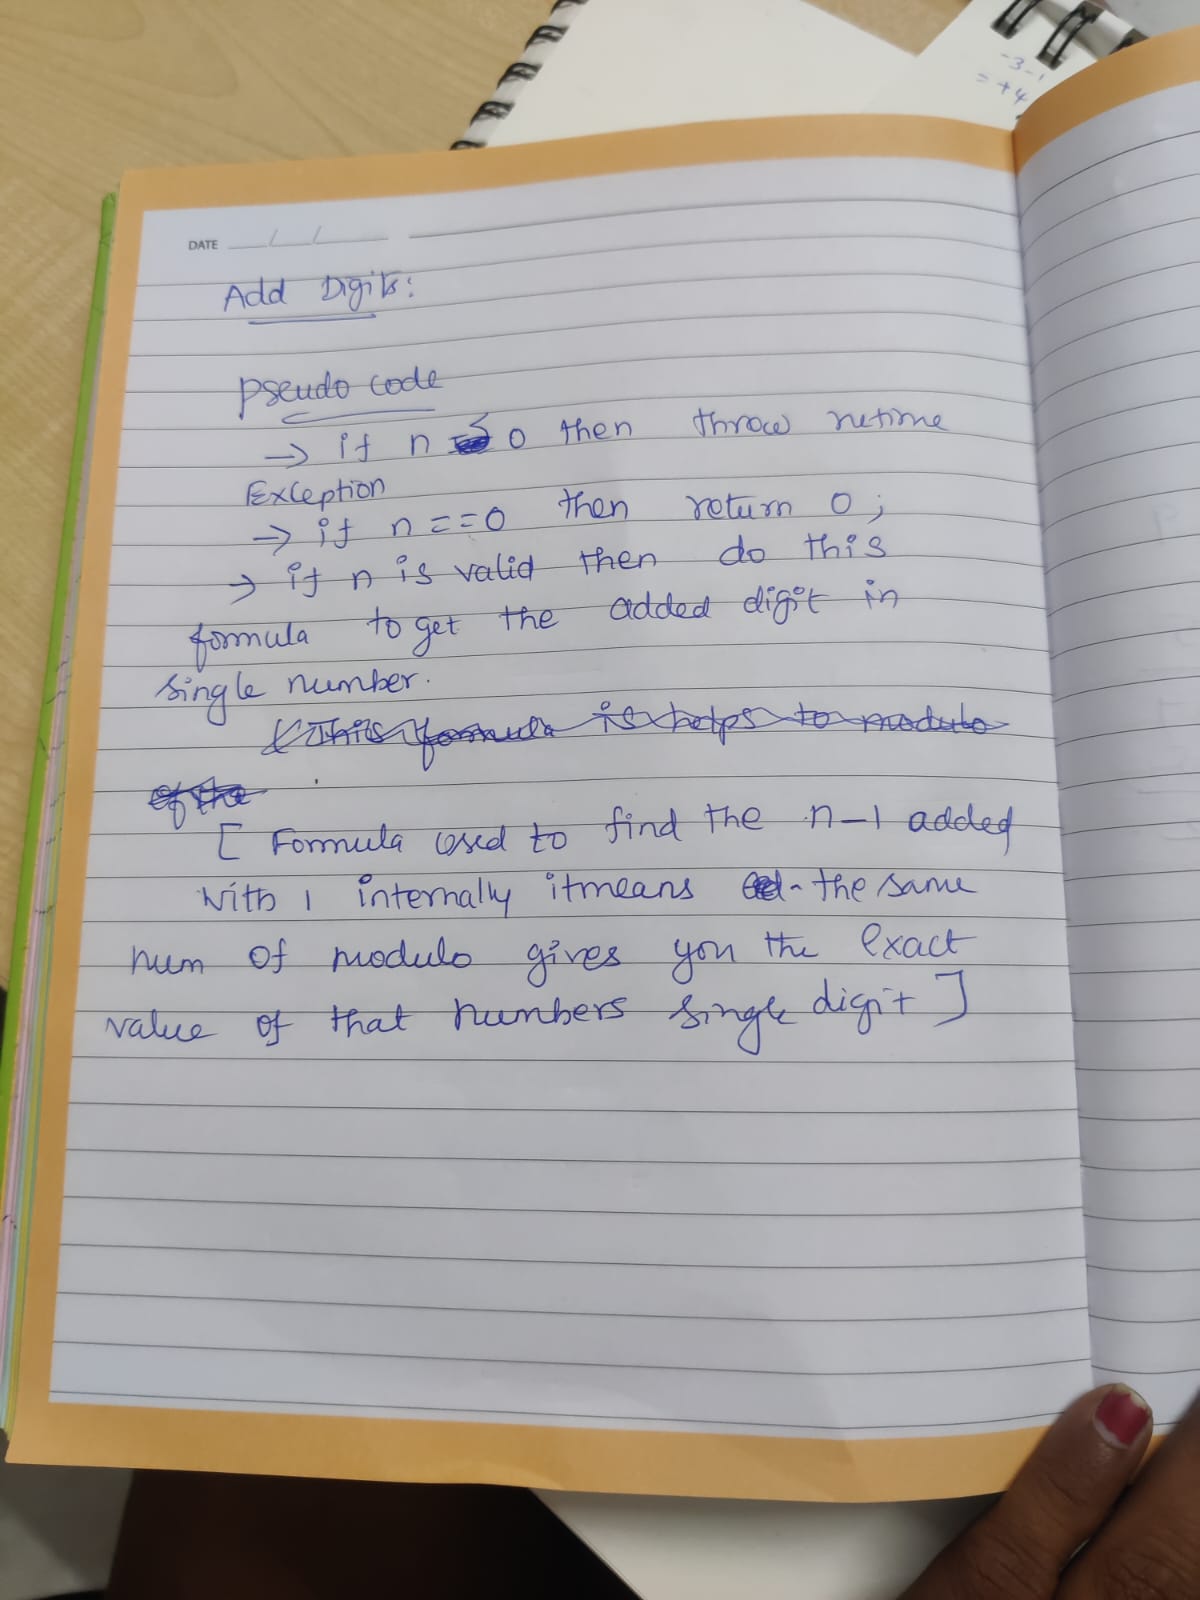 -3-1
= +4
DATE
Add Digits:
pseudo code
→ if n < 0 then throw retime
Exception
→ if n == 0 then return 0;
→ if n is valid then do this
formula to get the added digit in
single number.
This formula is helps to modulo
of the
[ Formula used to find the n-1 added
with 1 internally itmeans the same
num of modulo gives you the exact
value of that numbers single digit ]